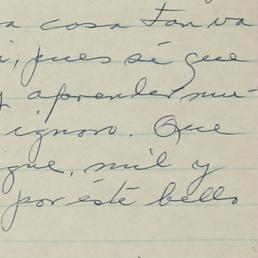 a cosa tan va
i, pues sé que
y aprender mu-
ignoro. Que
gue, mil y
por éste bello